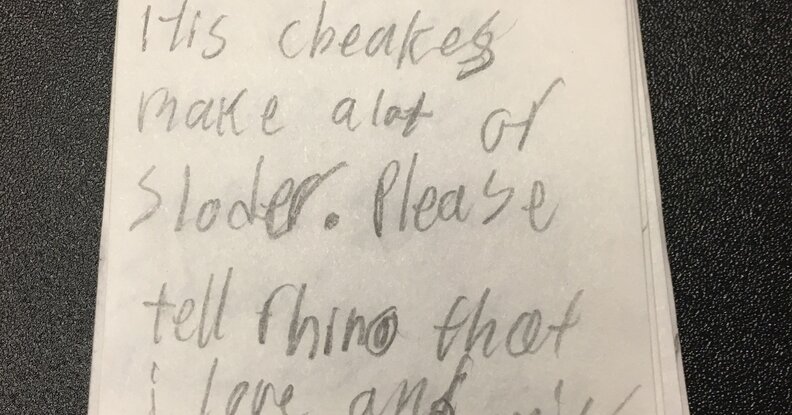 His cheakes
make a lot of
sloder. Please
tell rhino that
i love and